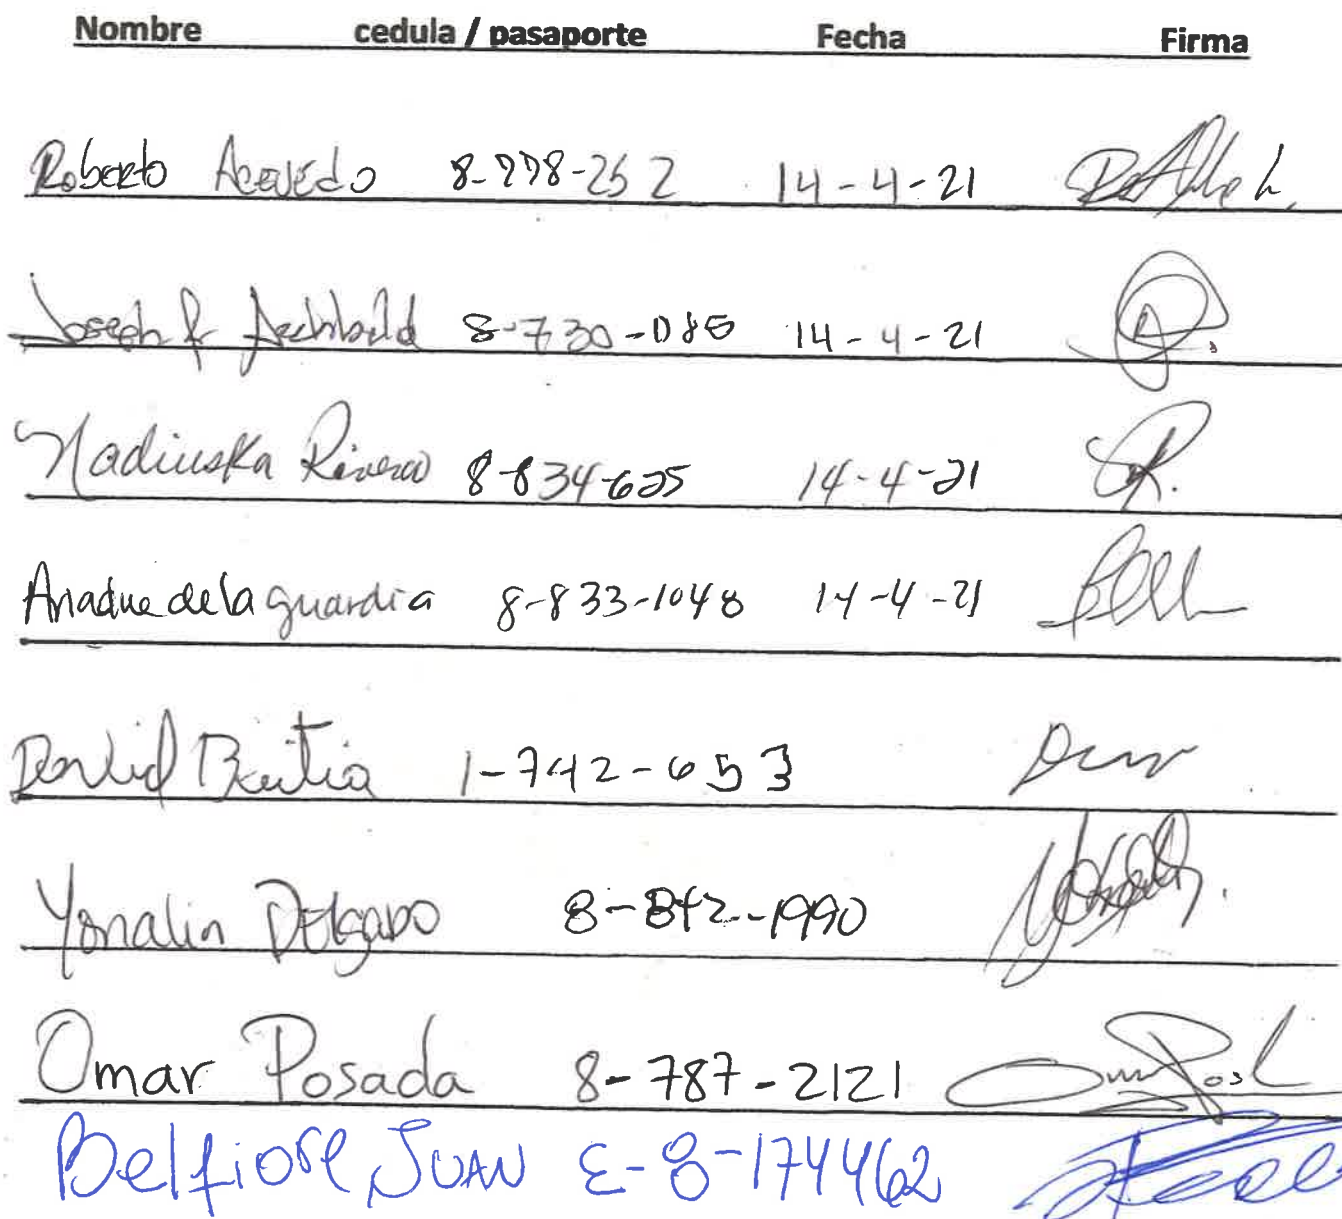 Nombre cedula / pasaporte Fecha Firma
Roberto Acevedo 8-778-252 14-4-21
Joseph R Archibald 8-730-085 14-4-21
Nadiuska Rivera 8-834-625 14-4-21
Ariadne de la guardia 8-833-1048 14-4-21
David Beitia 1-742-653
Yonalin Delgado 8-842-1990
Omar Posada 8-787-2121
Belfiore JUAN E-8-174462